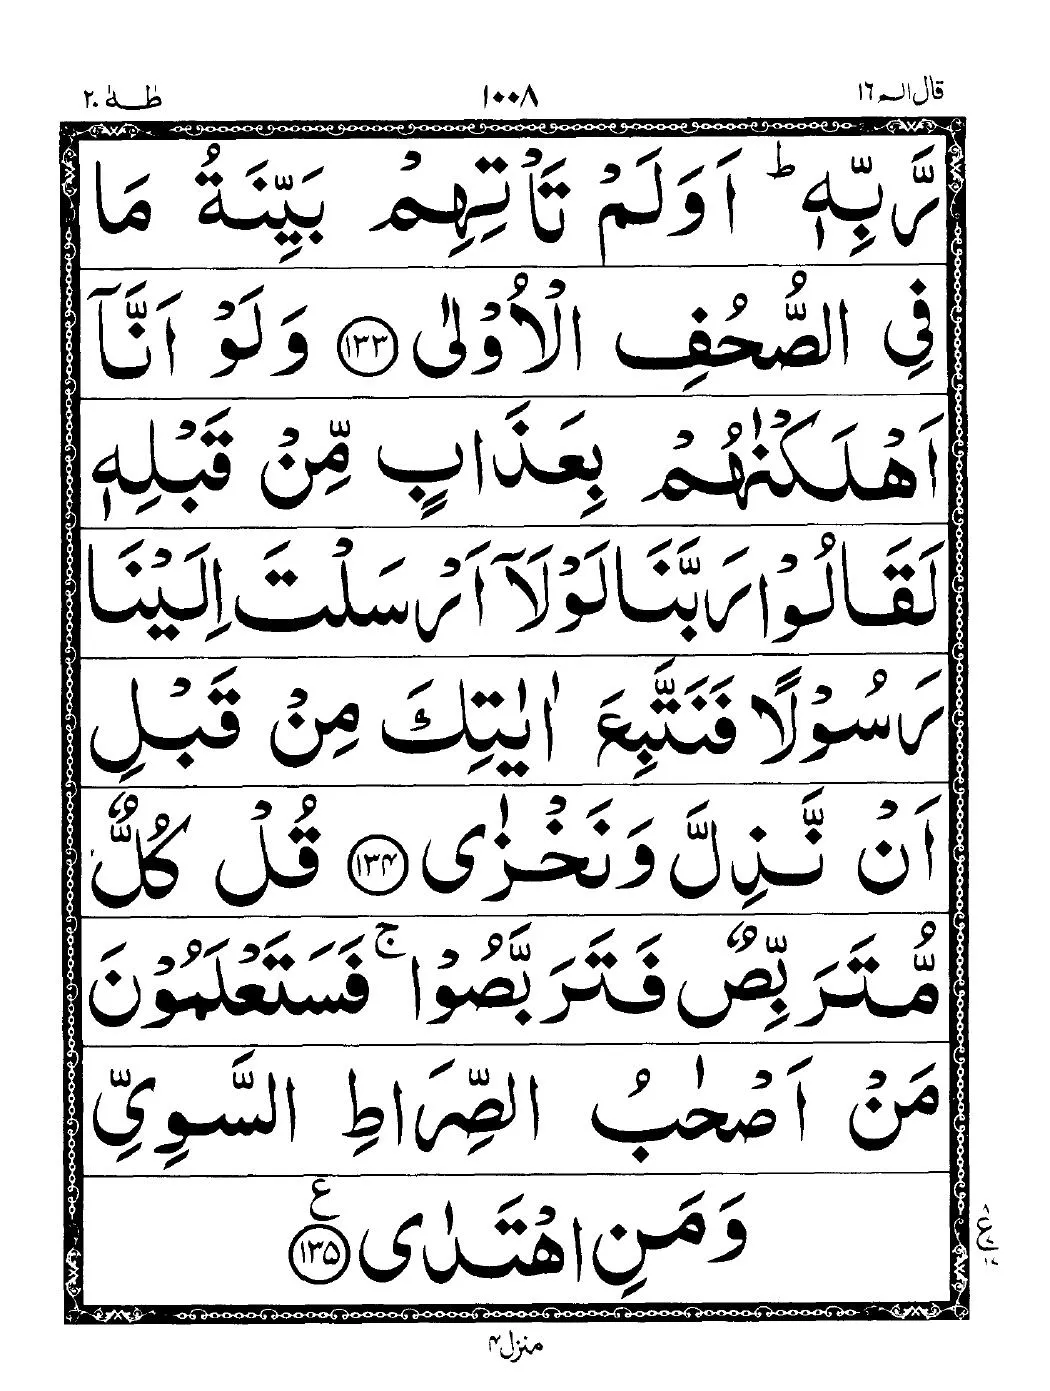 قال الم ١٦
١٠٠٨
طٰهٰ ٢٠
رَّبِّهٖ ؕ اَوَلَمْ تَاْتِهِمْ بَيِّنَةُ مَا
فِى الصُّحُفِ الْاُوْلٰى ۝۱۳۳ وَلَوْ اَنَّاۤ
اَهْلَكْنٰهُمْ بِعَذَابٍ مِّنْ قَبْلِهٖ
لَقَالُوْا رَبَّنَا لَوْلَاۤ اَرْسَلْتَ اِلَيْنَا
رَسُوْلًا فَنَتَّبِعَ اٰيٰتِكَ مِنْ قَبْلِ
اَنْ نَّذِلَّ وَنَخْزٰى ۝۱۳۴ قُلْ كُلٌّ
مُّتَرَبِّصٌ فَتَرَبَّصُوْا ۚ فَسَتَعْلَمُوْنَ
مَنْ اَصْحٰبُ الصِّرَاطِ السَّوِىِّ
وَمَنِ اهْتَدٰى ۝۱۳۵ ع
منزل ۴